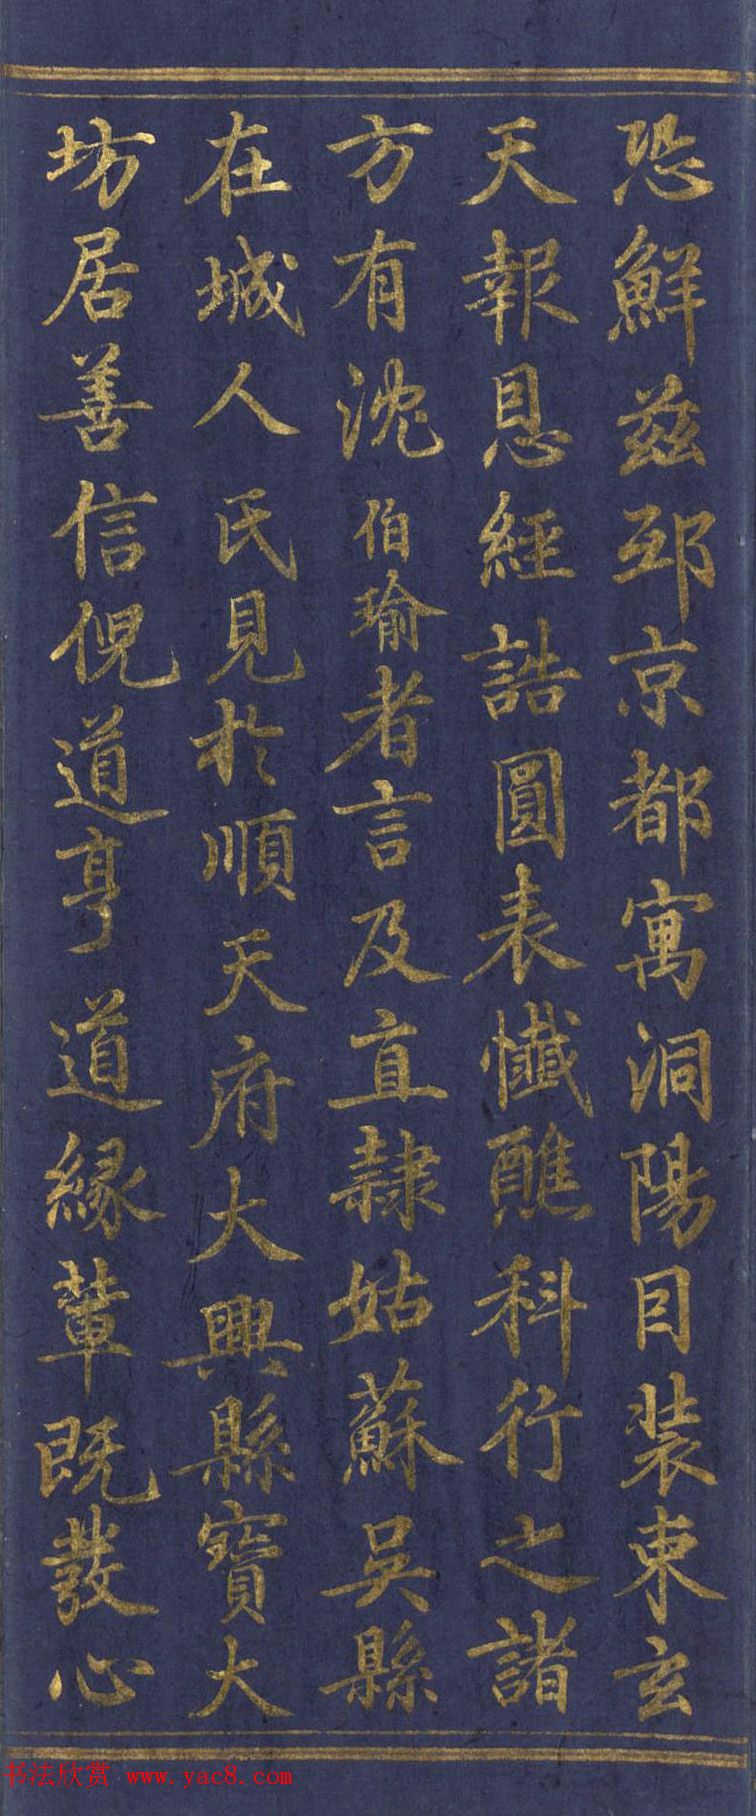 恐鮮兹邳京都寓洞陽目装東玄
天報恩經誥圓表懺醮科行之諸
方有沈伯瑜者言及直隸姑蘇吳縣
在城人氏見於順天府大興縣寶大
坊居善信倪道亨道緣輩既發心
书法欣赏 www.yac8.com